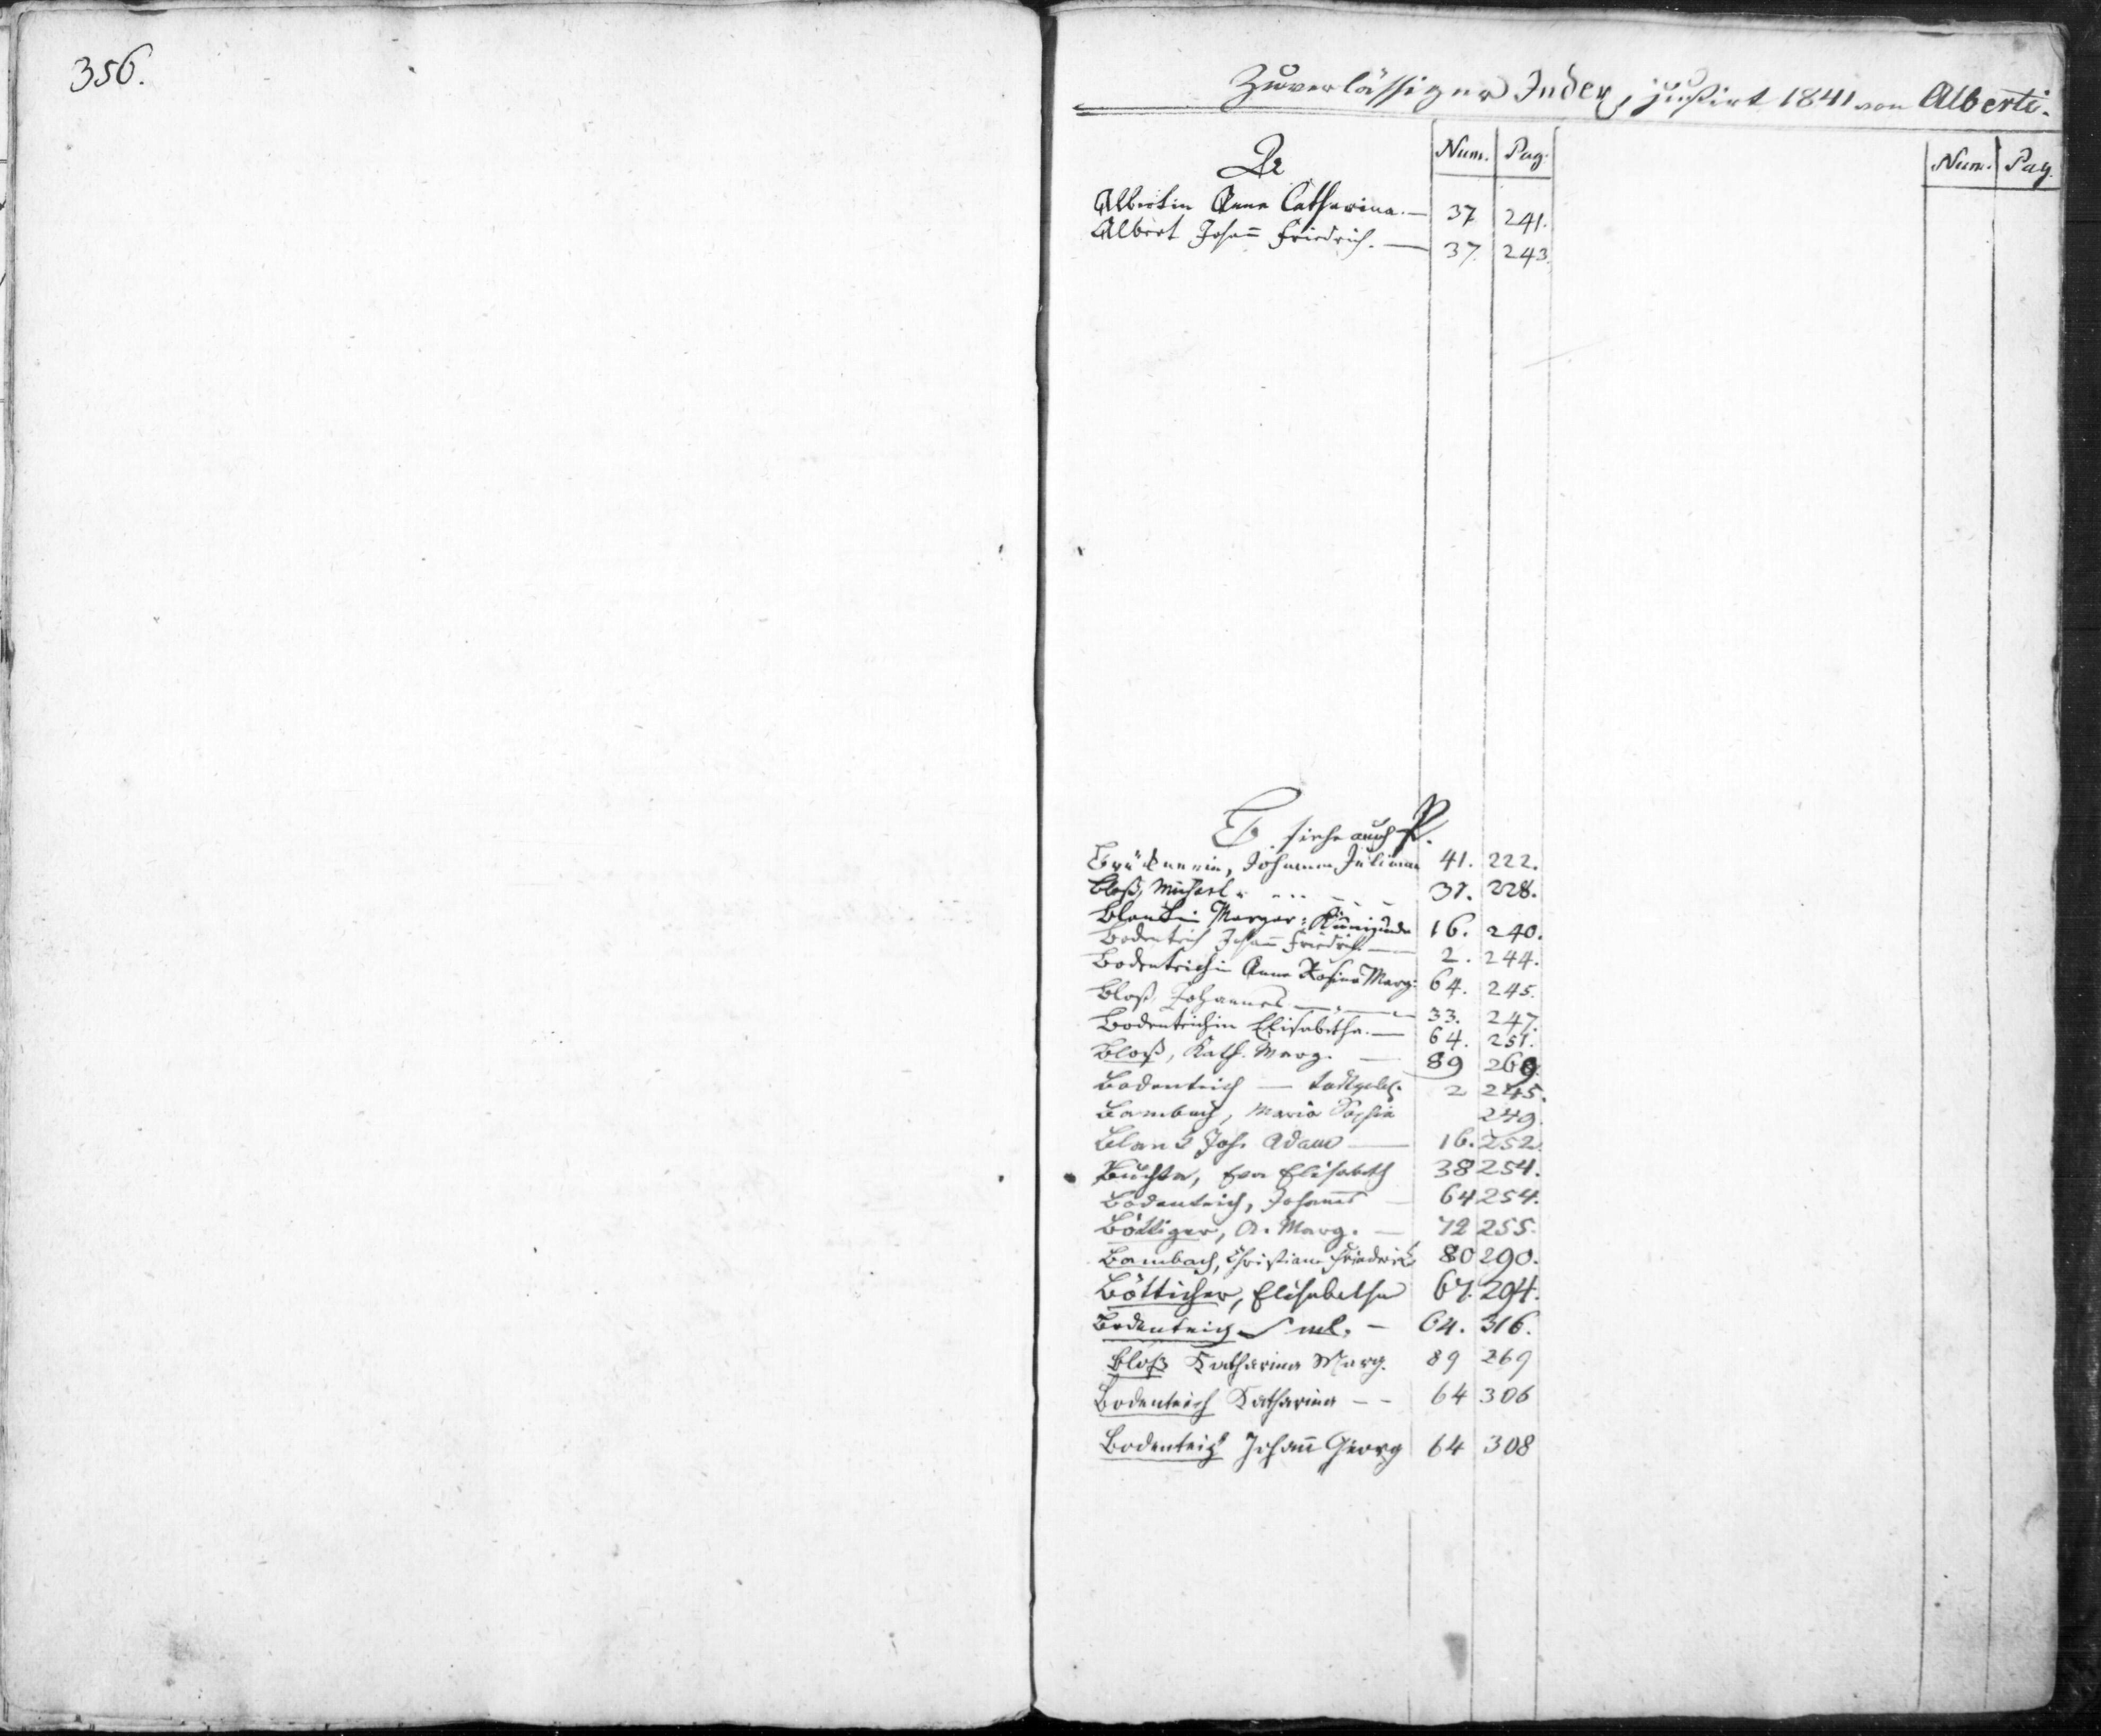 356.
Zuverlässiger Index, justirt 1841 von Alberti.
Num. Pag.
Num. Pag.
A
Albertin Anna Catharina. — 37 241.
Albert Johann Friedrich. — 37. 243.
B. siehe auch P.
Brücknerin, Johanna Juliana 41. 222.
Bloß, Michael 37. 228.
Blankin Margar: Kunigunda 16. 240.
Bodenteich Johann Friedrich — 2. 244.
Bodenteichin Anna Rosina Marg: 64. 245.
Bloß, Johannes — 33. 247.
Bodenteichin Elisabetha. — 64. 251.
Bloß, Kath. Marg. — 89 269.
Bodenteich — todtgeb. 2 245.
Bambach, Maria Sophia 249.
Blank Joh. Adam — 16. 252.
Buchta, Eva Elisabeth 38 254.
Bodenteich, Johannes — 64 254.
Böttiger, A. Marg. — 72 255.
Bambach, Christiane Friedericke 80 290.
Bötticher, Elisabetha 67. 294.
Bodenteich — 64. 316.
Bloß Katharina Marg. 89 269
Bodenteich Katharina – – 64 306
Bodenteich Johann Georg 64 308